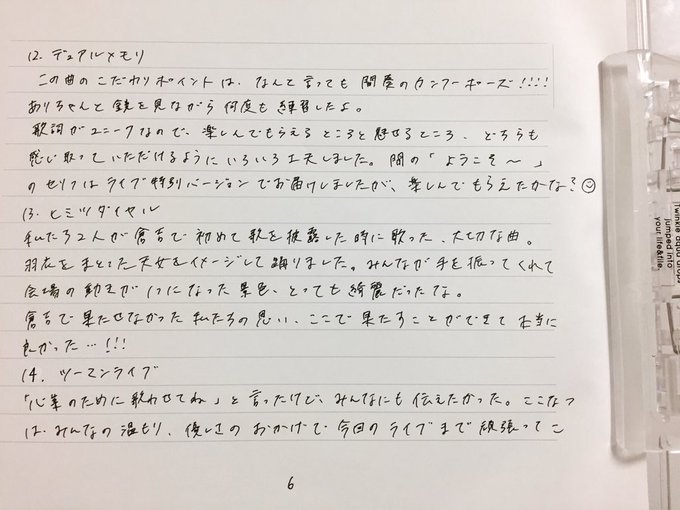 12. デュアルメモリ
この曲のこだわりポイントは、なんと言っても間奏のカンフーポーズ!!!!
ありちゃんと鏡を見ながら何度も練習したよ。
歌詞がユニークなので、楽しんでもらえるところと魅せるところ、どちらも
感じ取っていただけるようにいろいろ工夫しました。間の「ようこそ〜」
のセリフはライブ特別バージョンでお届けしましたが、楽しんでもらえたかな?☺
13. ヒミツダイヤル
私たち2人が倉吉で初めて歌を披露した時に歌った、大切な曲。
羽衣をまとった天女をイメージして踊りました。みんなが手を振ってくれて
会場の動きが1つになった景色、とっても綺麗だったな。
倉吉で果たせなかった私たちの思い、ここで果たすことができて本当に
良かった…!!!
14. ツーマンライブ
「心菜のために歌わせてね」と言ったけど、みんなにも伝えたかった。ここなつ
は、みんなの温もり、優しさのおかげで今回のライブまで頑張ってこ
6
Twinkle aqua drops
jumped into
your life&file.